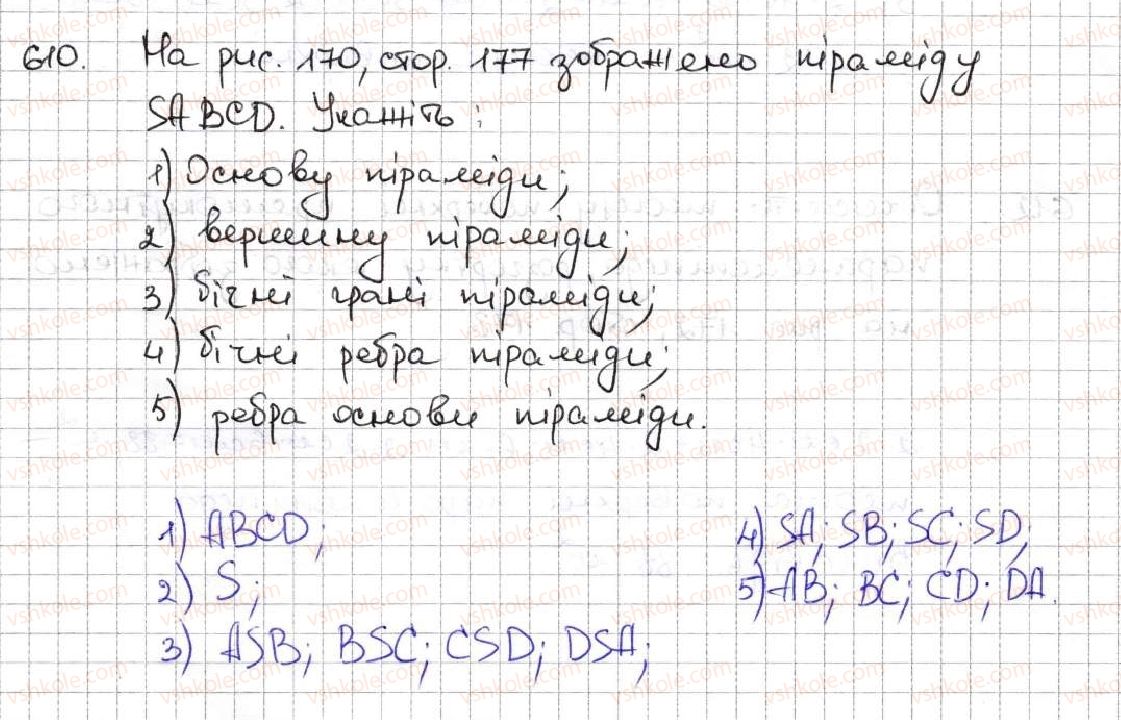 610. На рис. 170, стор. 177 зображено піраміду
SABCD. Укажіть:
1) Основу піраміди;
2) вершину піраміди;
3) бічні грані піраміди;
4) бічні ребра піраміди;
5) ребра основи піраміди.
1) ABCD;
2) S;
3) ASB; BSC; CSD; DSA;
4) SA; SB; SC; SD;
5) AB; BC; CD; DA.